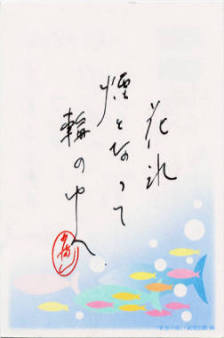 花氷
煙となつて
輪の中へ